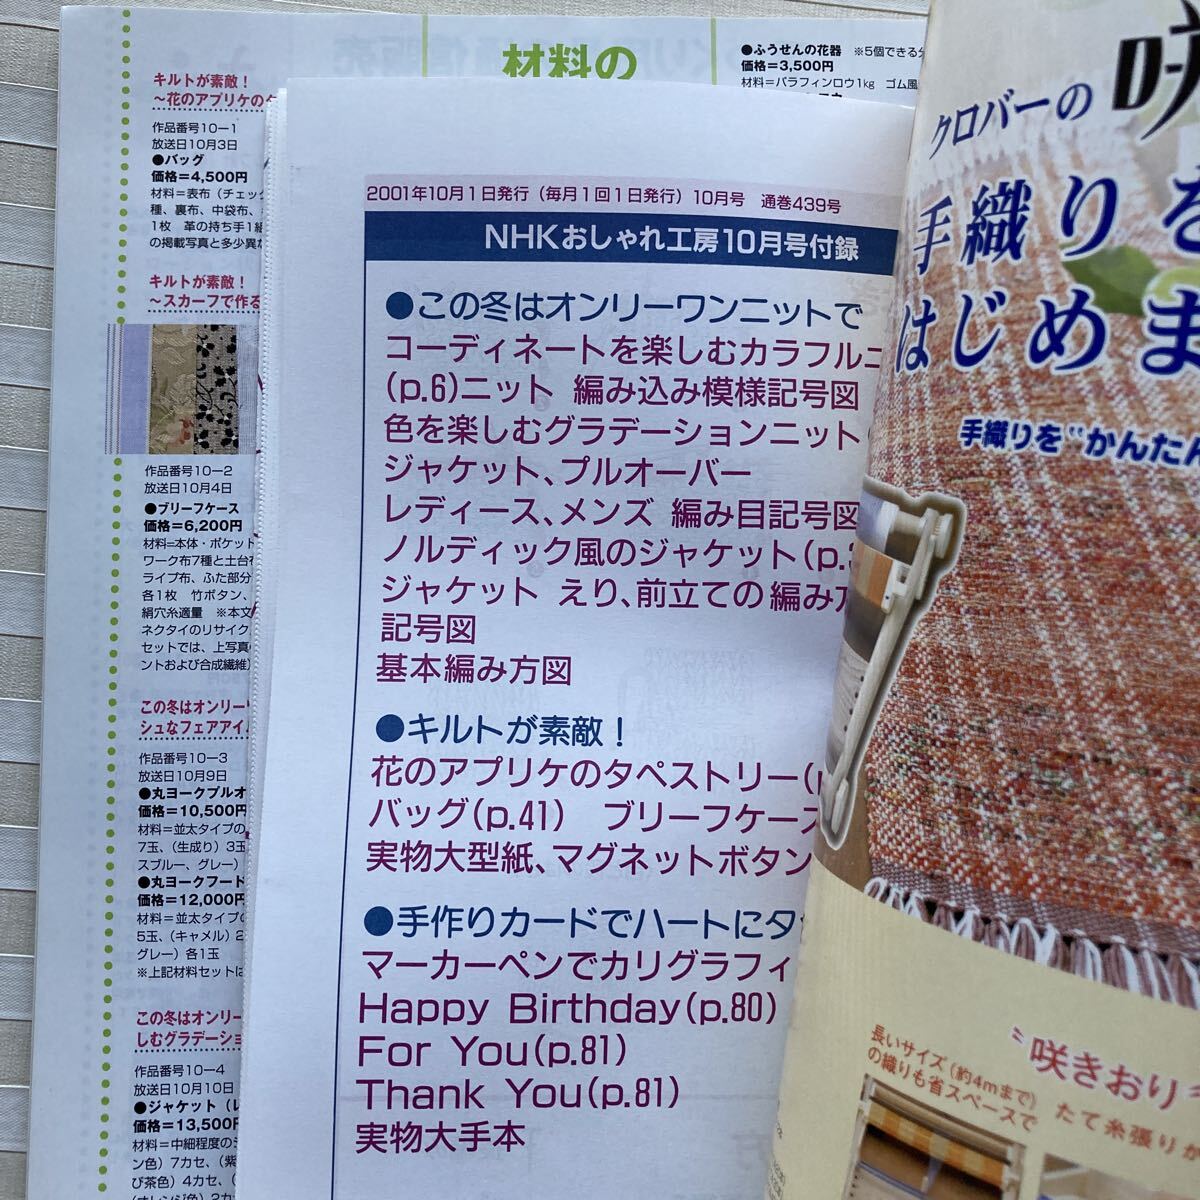 材料の
●ふうせんの花器 ※5個できる分
価格=3,500円
材料=パラフィンロウ1kg ゴム風
キルトが素敵！
～花のアプリケの
作品番号10−1
放送日10月3日
●バッグ
価格=4,500円
材料=表布（チェック
種、裏布、中袋布、
1枚 革の持ち手1組
の掲載写真と多少異な
キルトが素敵！
～スカーフで作る
作品番号10−2
放送日10月4日
●ブリーフケース
価格=6,200円
材料=本体・ポケット
ワーク布7種と土台布
ライプ布、ふた部分
各1枚 竹ボタン、
絹穴糸適量 ※本文
ネクタイのリサイク
セットでは、上写真の
ントおよび合成繊維）
この冬はオンリー
シュなフェアアイル
作品番号10−3
放送日10月9日
●丸ヨークプルオ
価格=10,500円
材料=並太タイプの
7玉、（生成り）3玉
スブルー、グレー）
●丸ヨークフード
価格=12,000円
材料=並太タイプの
5玉、（キャメル）2
グレー）各1玉
※上記材料セットは
この冬はオンリー
しむグラデーショ
作品番号10−4
放送日10月10日
●ジャケット（レ
価格=13,500円
材料=中細程度の
ン色）7カセ、（紫
び茶色）4カセ、（
（オレンジ色）2カ
2001年10月1日発行（毎月1回1日発行）10月号 通巻439号
NHKおしゃれ工房10月号付録
●この冬はオンリーワンニットで
コーディネートを楽しむカラフルニ
(p.6)ニット 編み込み模様記号図
色を楽しむグラデーションニット
ジャケット、プルオーバー
レディース、メンズ 編み目記号図
ノルディック風のジャケット(p.3
ジャケット えり、前立ての編み方
記号図
基本編み方図
●キルトが素敵！
花のアプリケのタペストリー(p
バッグ(p.41) ブリーフケース
実物大型紙、マグネットボタン
●手作りカードでハートにタッ
マーカーペンでカリグラフィ
Happy Birthday(p.80)
For You(p.81)
Thank You(p.81)
実物大手本
クロバーの 咲
手織りを
はじめま
手織りを“かんたん
“咲きおり
長いサイズ（約4mまで）
の織りも省スペースで
たて糸張りが